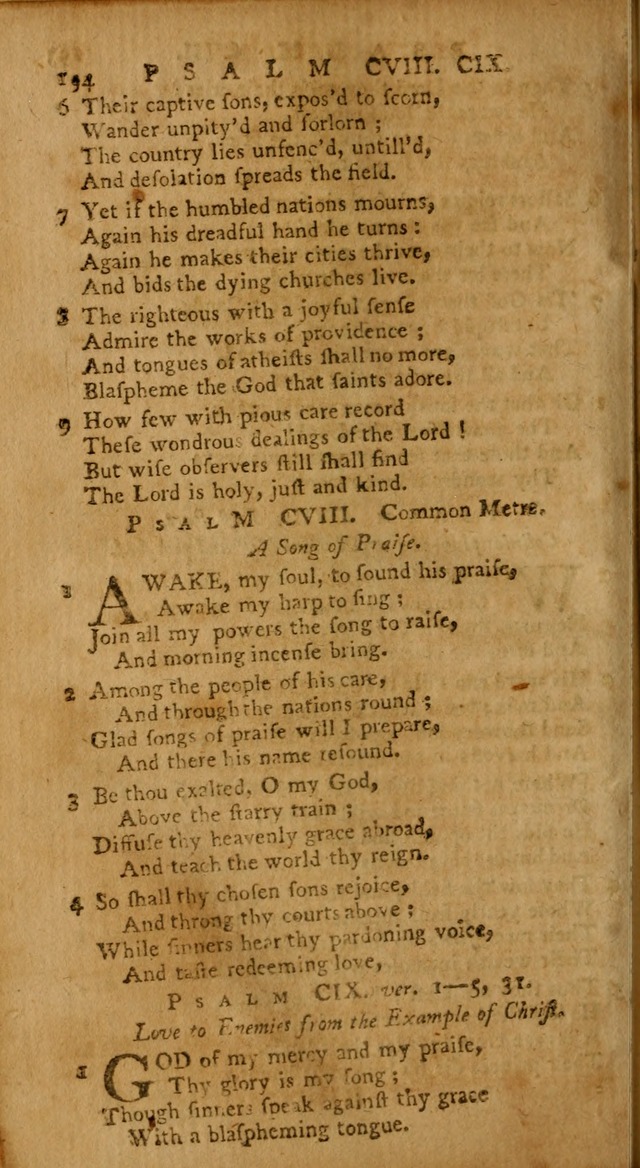 194 PSALM CVIII. CIX
6 Their captive ſons, expos'd to ſcorn,
Wander unpity'd and forlorn ;
The country lies unfenc'd, untill'd,
And deſolation ſpreads the field.
7 Yet if the humbled nations mourns,
Again his dreadful hand he turns :
Again he makes their cities thrive,
And bids the dying churches live.
8 The righteous with a joyful ſenſe
Admire the works of providence ;
And tongues of atheiſts ſhall no more,
Blaſpheme the God that ſaints adore.
9 How few with pious care record
Theſe wondrous dealings of the Lord !
But wiſe obſervers ſtill ſhall find
The Lord is holy, juſt and kind.
PSALM CVIII. Common Metre.
A Song of Praiſe.
1 AWAKE, my ſoul, to ſound his praiſe,
Awake my harp to ſing ;
Join all my powers the ſong to raiſe,
And morning incenſe bring.
2 Among the people of his care,
And through the nations round ;
Glad ſongs of praiſe will I prepare,
And there his name reſound.
3 Be thou exalted, O my God,
Above the ſtarry train ;
Diffuſe thy heavenly grace abroad,
And teach the world thy reign.
4 So ſhall thy choſen ſons rejoice,
And throng thy courts above ;
While ſinners hear thy pardoning voice,
And taſte redeeming love,
PSALM CIX. ver. 1—5, 31.
Love to Enemies from the Example of Chriſt.
1 GOD of my mercy and my praiſe,
Thy glory is my ſong ;
Though ſinners ſpeak againſt thy grace
With a blaſpheming tongue.